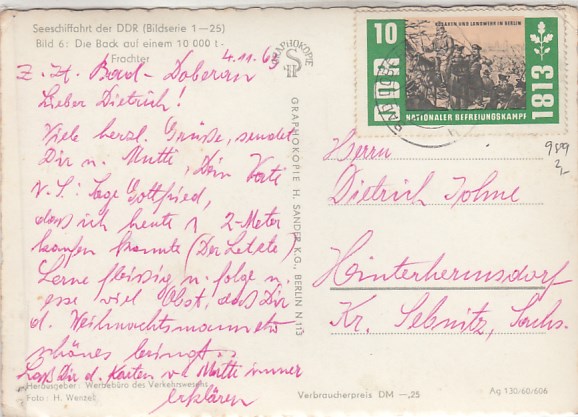 Seeschiffahrt der DDR (Bildserie 1—25)
Bild 6: Die Back auf einem 10 000 t-
Frachter
4.11.63
z. Zt. Bad-Doberan
Lieber Dietrich!
Viele herzl. Grüße, sendet
Dir u. Mutti, Dein Vati
N.S.: Sage Gottfried,
daß ich heute 1 2-Meter
kaufen konnte (Der Letzte)
Lerne fleissig u. folge u.
esse viel Obst, daß Dir
d. Weihnachtsmann etw
schönes bringt.
Laß Dir d. Karten v. Mutti immer
erklären
Herausgeber: Werbebüro des Verkehrswesens
Foto: H. Wenzel
GRAPHOKOPIE
GRAPHOKOPIE H. SANDER K.G., BERLIN N 113
HUSAREN UND LANDWEHR IN BERLIN
10
DDR
1813
NATIONALER BEFREIUNGSKAMPF
BAD DO
9899
2,-
Herrn
Dietrich Johne
Hinterhermsdorf
Kr. Sebnitz, Sachs.
Verbraucherpreis DM —,25
Ag 130/60/606